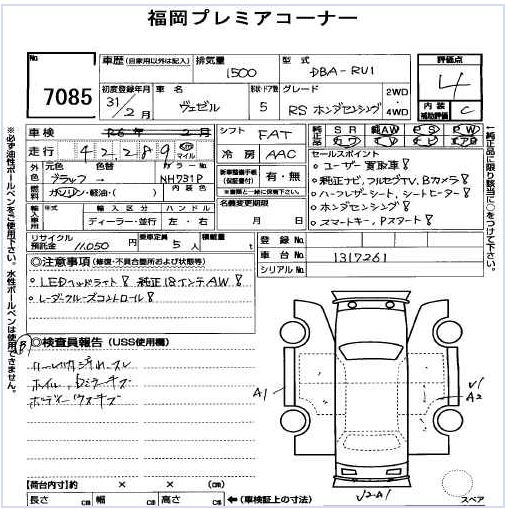 福岡プレミアコーナー
No
7085
車歴 (自家用以外は記入)
排気量
1500
型式
DBA-RU1
評価点
4
内装補助評価
C
初度登録年月
31年2月
車名
ヴェゼル
形状・ドア数
5
グレード
RS ホンダセンシング
2WD・4WD
車検
R6年 2月
シフト
FAT
純正品
SR AW PS PW
走行
42,289
km マイル
冷房
AAC
セールスポイント
ユーザー買取車!
外元色
ブラック
色替
カラーNo
NH731P
新車整備手帳(保証書付)
有・無
※書類と一緒に後席下さい
純正ナビ、フルセグTV、Bカメラ!
燃料
ガソリン・軽油・( )
内装色
ハーフレザーシート シートヒーター!
輸入車用
年式
輸入区分
ハンドル
ディーラー・並行
左・右
名義変更期限
月 日
ホンダセンシング!
スマートキー、Pスタート!
リサイクル預託金
11,050円
乗車定員
5人
積載量
t
登録No
車台No
1317261
シリアルNo
◎注意事項 (修復・不具合箇所および状態等)
LEDヘッドライト! 純正18インチAW!
レーダークルーズコントロール!
◎検査員報告 (USS使用欄)
ホイル、Dミラーキズ
ボディーウスキズ
A1
A2
【荷台内寸】約 × × (cm)
長さ cm 幅 cm 高さ cm
←(車検証上の寸法)
スペア
※必ず油性ボールペンをご使用下さい。水性ボールペンは使用できません。
↑純正品に限り該当に○をつけて下さい。